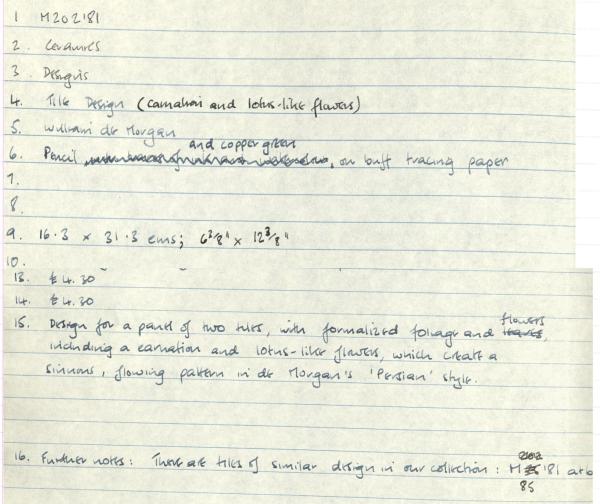 1 M202'81
2. Ceramics
3. Designs
4. Tile Design (carnation and lotus-like flowers)
5. William de Morgan
and copper green
6. Pencil, on buff tracing paper
7.
8.
9. 16.3 x 31.3 cms; 6 3/8" x 12 3/8"
10.
13. £4.30
14. £4.30
15. Design for a panel of two tiles, with formalized foliage and flowers leaves,
including a carnation and lotus-like flowers, which create a
sinuous, flowing pattern in de Morgan's 'Persian' style.
16. Further notes: There are tiles of similar design in our collection: M '81 a+b
85